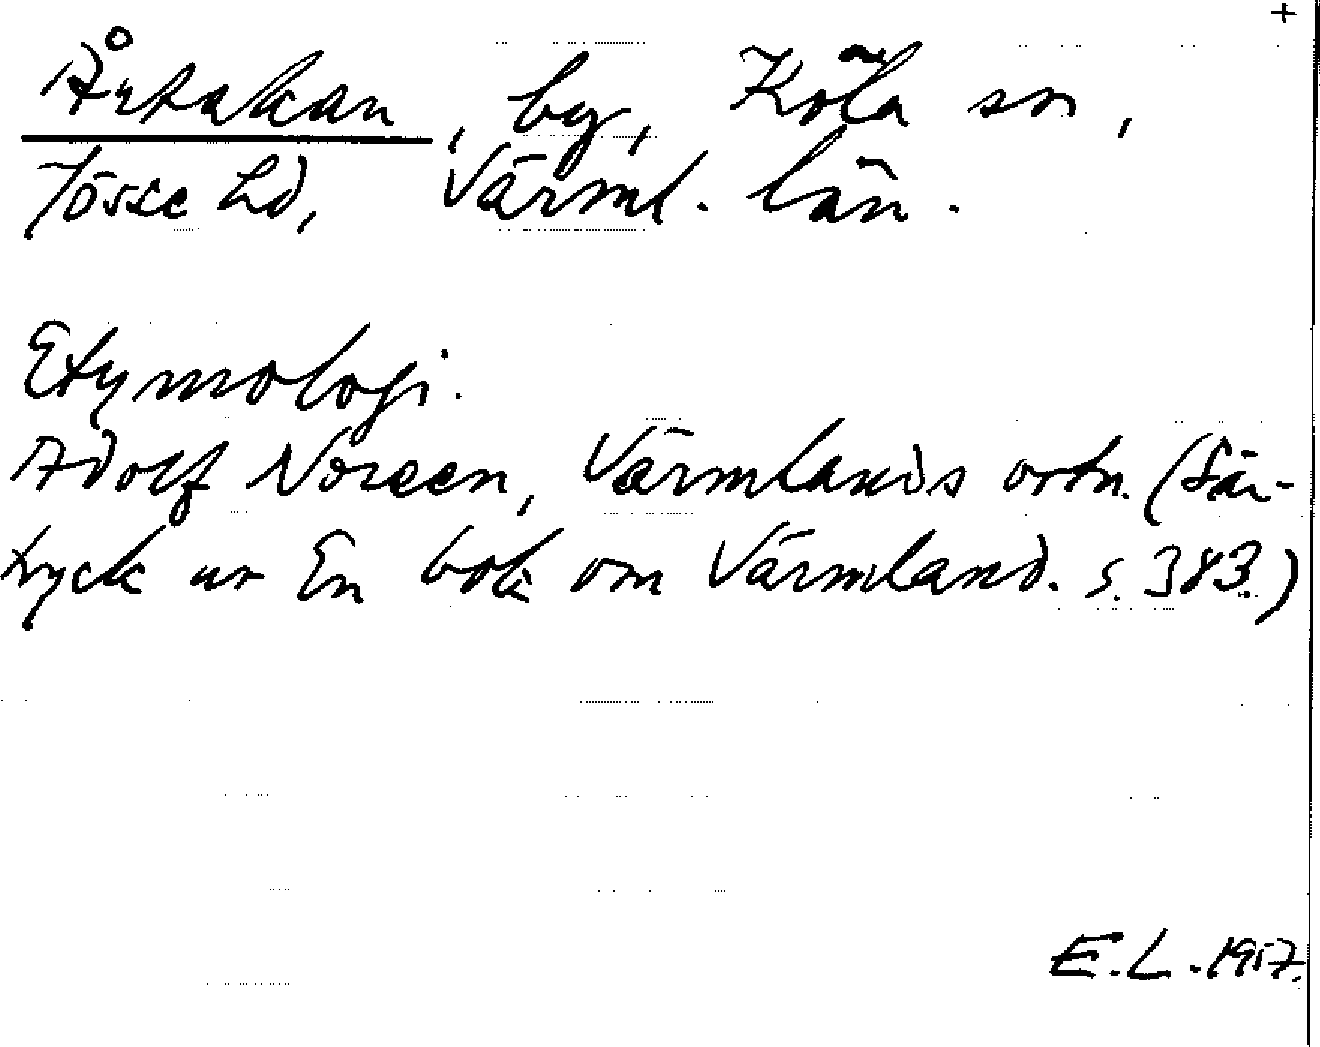 +
Årtakan, by, Köla sn,
Jösse hd, Värml. län.
Etymologi.
Adolf Noreen, Värmlands ortn. (Sär-
tryck ur En bok om Värmland. s. 383.)
E.L. 1957.